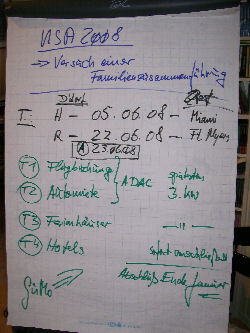 USA 2008
=> Versuch einer
Familienzusammenführung
Dü Ort
I: H - 05.06.08 - Miami
R - 22.06.08 - Ft. Myers
A 23.06.08
T1 Flugbuchung
ADAC
spätestens
T2 Automiete
3. KW
T3 Ferienhäuser - " -
T4 Hotels
sofort anschließend
Abschluß Ende Januar